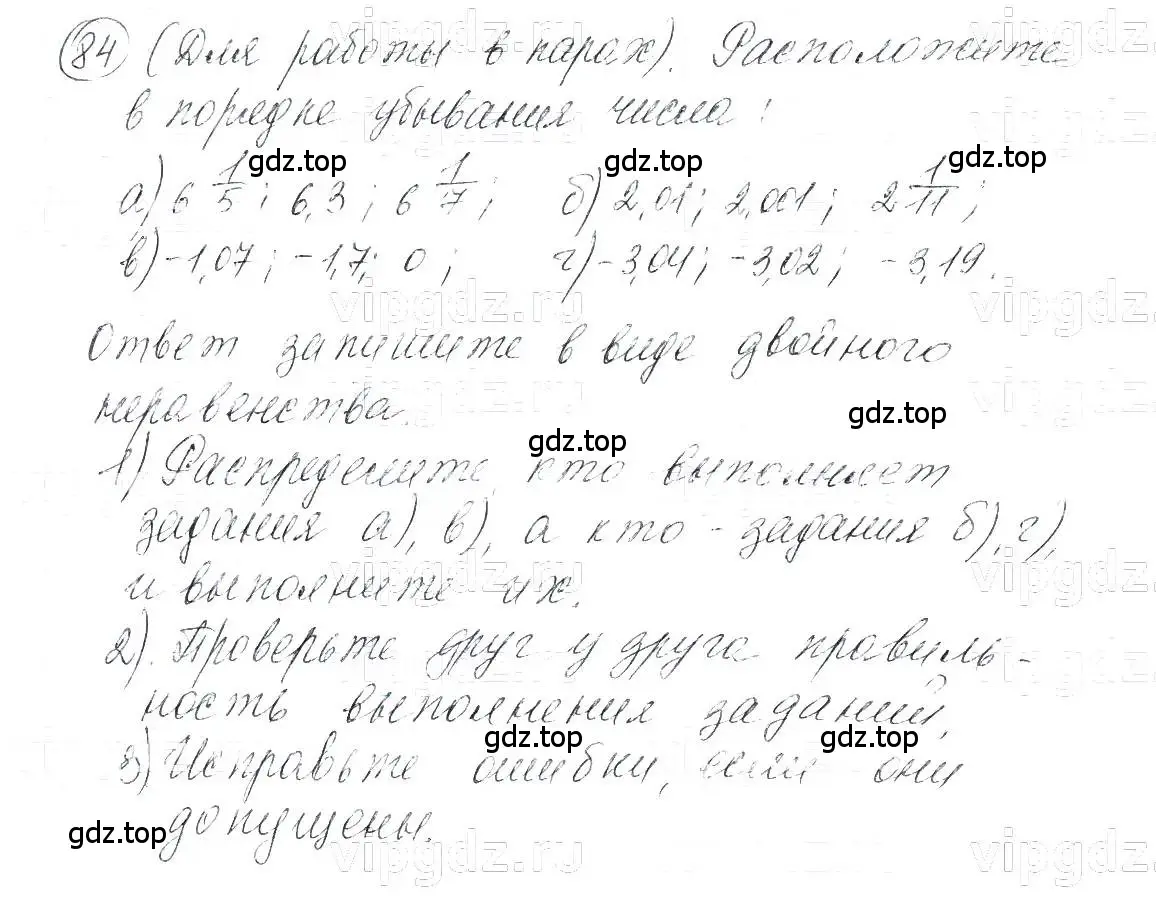 84 (Для работы в парах). Расположите
в порядке убывания числа:
а) 6 1/5; 6,3; 6 1/7; б) 2,01; 2,001; 2 1/11;
в) -1,07; -1,7; 0; г) -3,04; -3,02; -3,19.
Ответ запишите в виде двойного
неравенства.
1) Распределите, кто выполняет
задания а), в), а кто - задания б), г),
и выполните их.
2). Проверьте друг у друга правиль-
ность выполнения заданий.
3) Исправьте ошибки, если они
допущены.
gdz.top
gdz.top
gdz.top
gdz.top
gdz.top
gdz.top
gdz.top
gdz.top
vipgdz.ru
vipgdz.ru
vipgdz.ru
vipgdz.ru
vipgdz.ru
vipgdz.ru